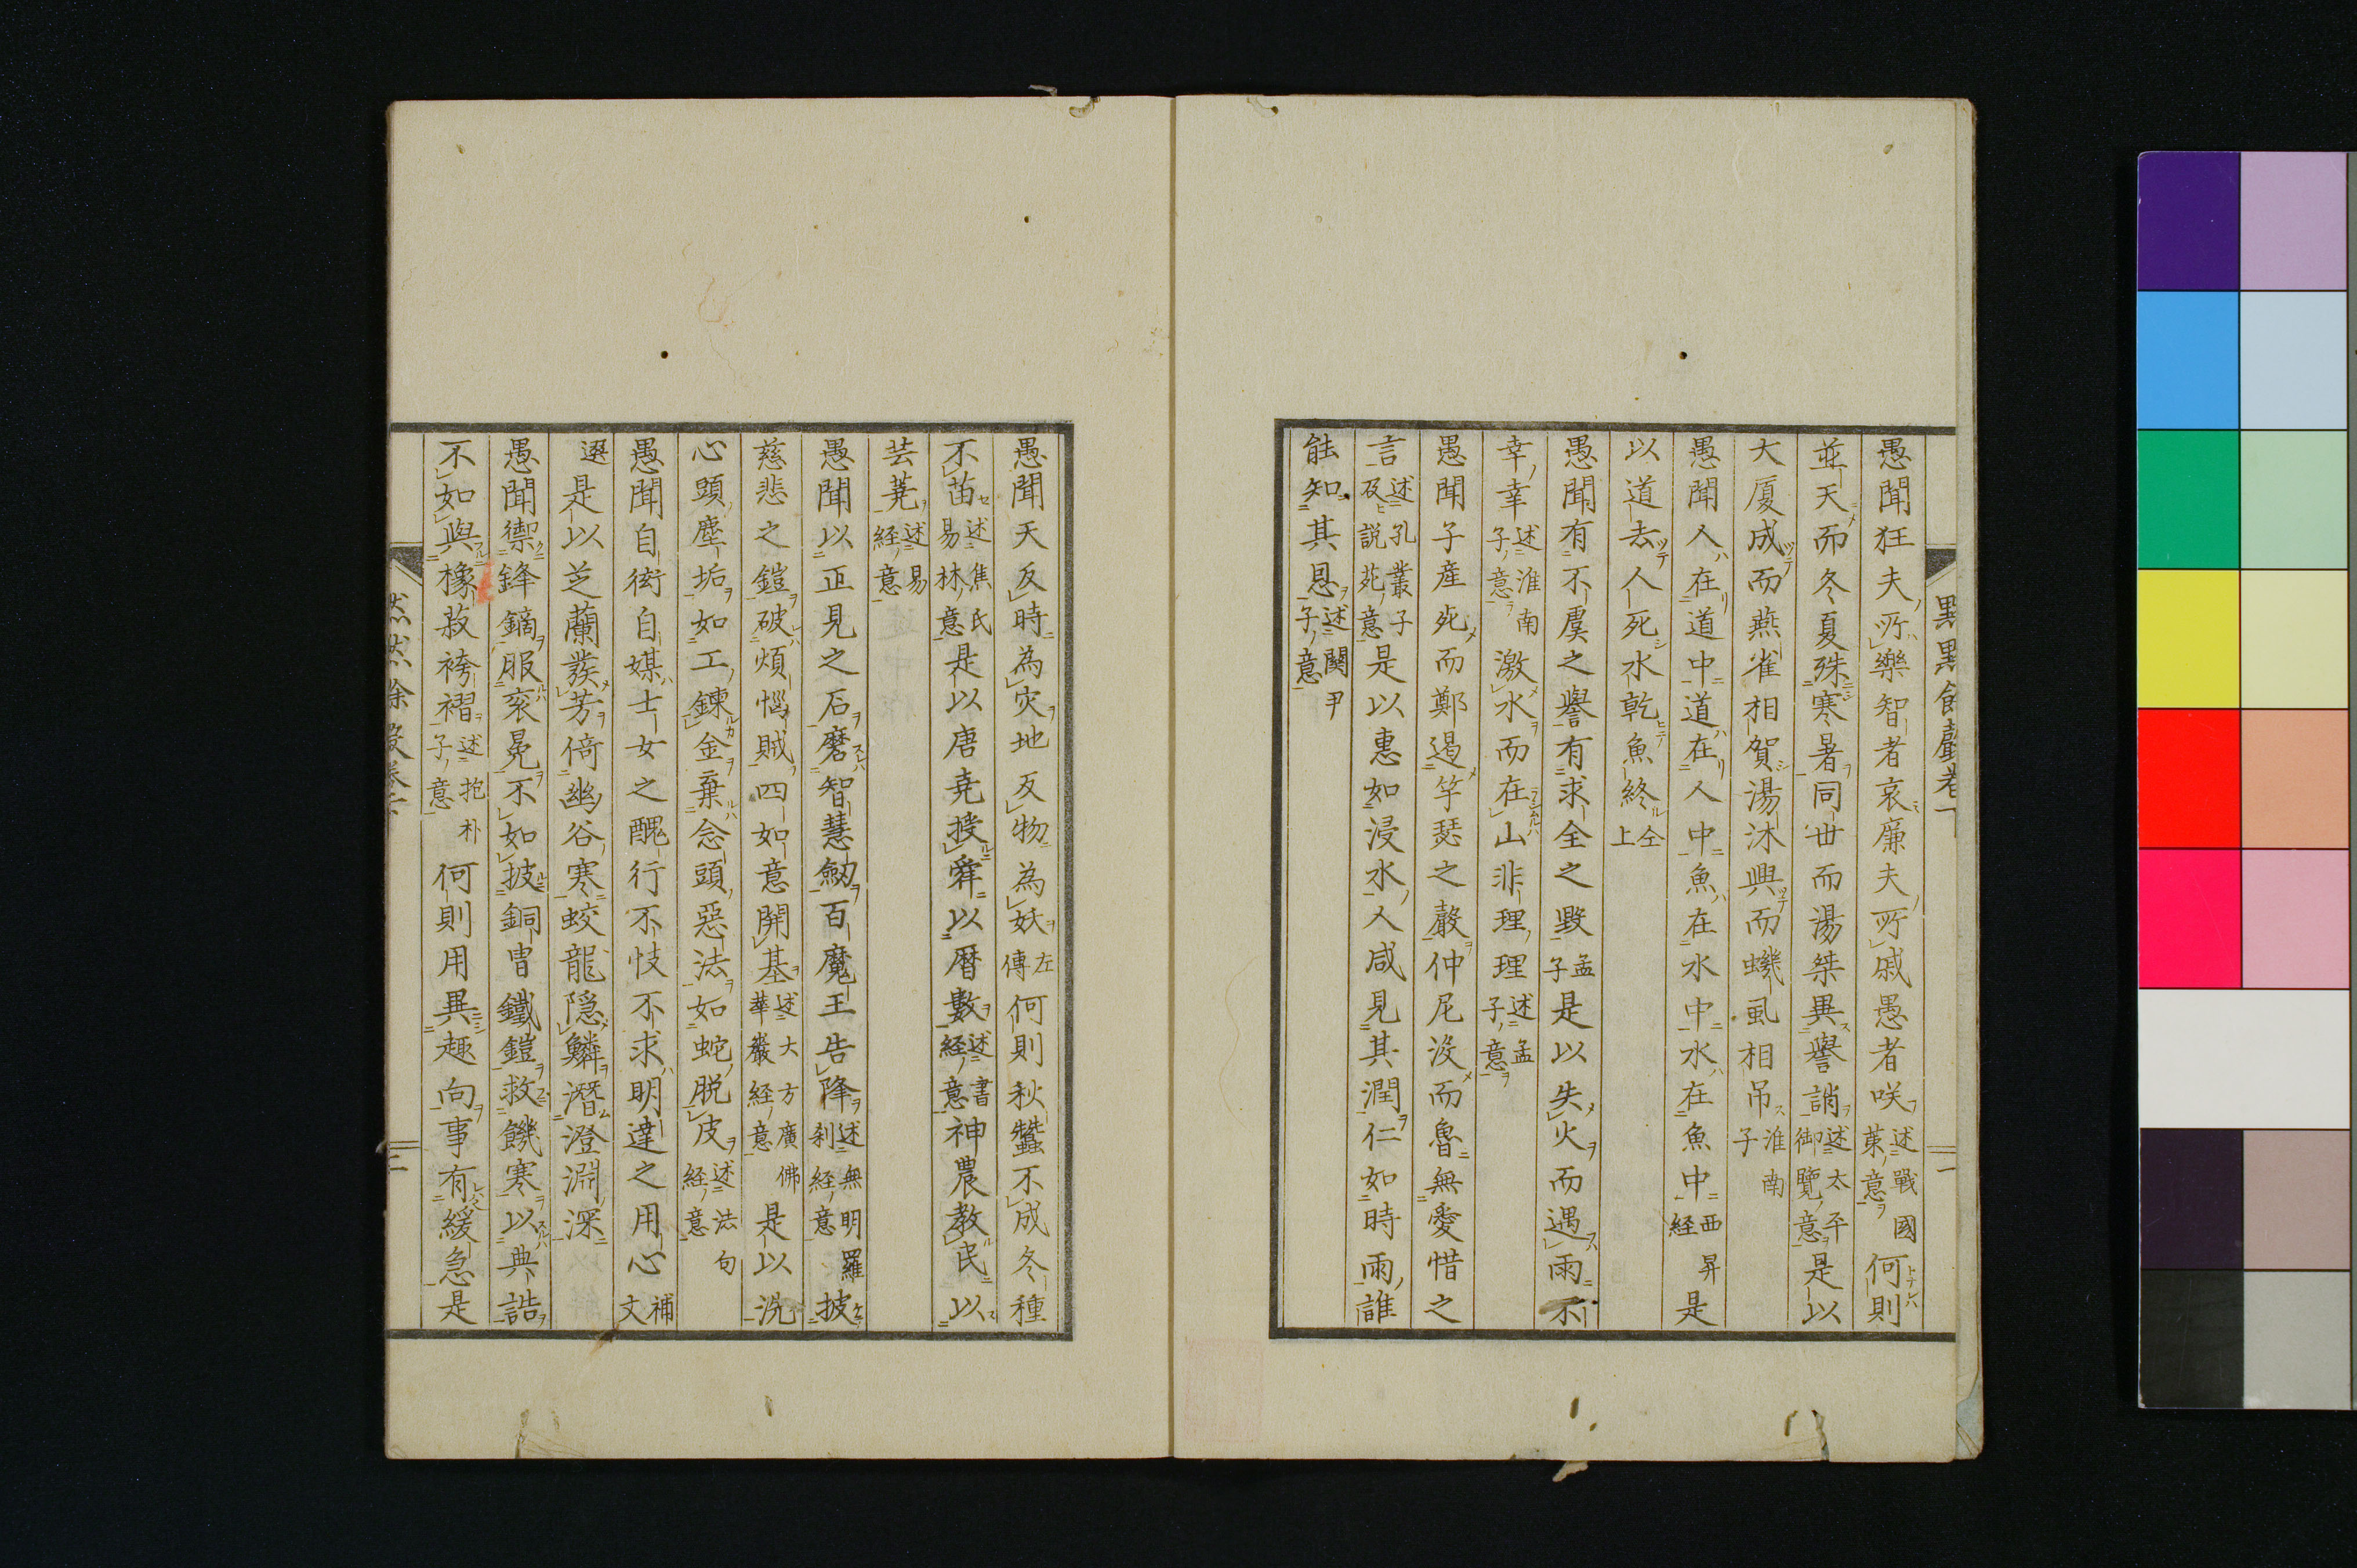 愚聞狂夫所樂智者哀廉夫所戚愚者咲述戰國策意何則
並天而冬夏殊寒暑同世而湯桀異譽誚述太平御覽意是以
大厦成而燕雀相賀湯沐興而蟣虱相吊淮南子
愚聞人在道中道在人中魚在水中水在魚中西昇経是
以道去人死水乾魚終仝上
愚聞有不虞之譽有求全之毀孟子是以失火而遇雨不
幸幸述淮南子意激水而在山非理理述孟子意
愚聞子産死而鄭遏竽瑟之聲仲尼沒而魯無愛惜之
言述孔叢子及説苑意是以惠如浸水人咸見其潤仁如時雨誰
能知其恩述関尹子意
愚聞天反時為灾地反物為妖左傳何則秋蠶不成冬種
不苗述焦氏易林意是以唐尭授舜以暦數述書経意神農教民以
芸荛述易経意
愚聞以正見之石磨智慧劔百魔王告降述無明羅刹経意披
慈悲之鎧破煩惱賊四如意開基述大方廣佛華嚴経意是以洗
心頭塵垢如工錬金棄念頭惡法如蛇脱皮述法句経意
愚聞自衒自媒士女之醜行不忮不求明達之用心補文
選是以芝蘭發芳倚幽谷寒蛟龍隠鱗潛澄淵深
愚聞禦鋒鏑服衮冕不如披銅冑鐵鎧救饑寒以典誥
不如與橡菽袴褶述抱朴子意何則用異趣向事有緩急是